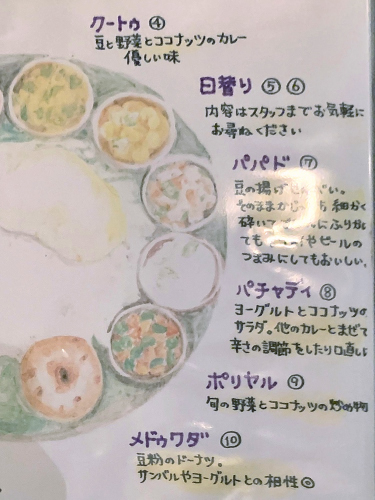 クートゥ ④
豆と野菜とココナッツのカレー
優しい味
日替り ⑤ ⑥
内容はスタッフまでお気軽に
お尋ねください
パパド ⑦
豆の揚げせんべい。
そのままかじ 細かく
砕いて にふりか
ても やビールの
つまみにしてもおいしい。
パチャディ ⑧
ヨーグルトとココナッツの
サラダ。他のカレーとまぜて
辛さの調節をしたり口直し
ポリヤル ⑨
旬の野菜とココナッツの炒め物
メドゥワダ ⑩
豆粉のドーナツ。
サンバルやヨーグルトとの相性◎